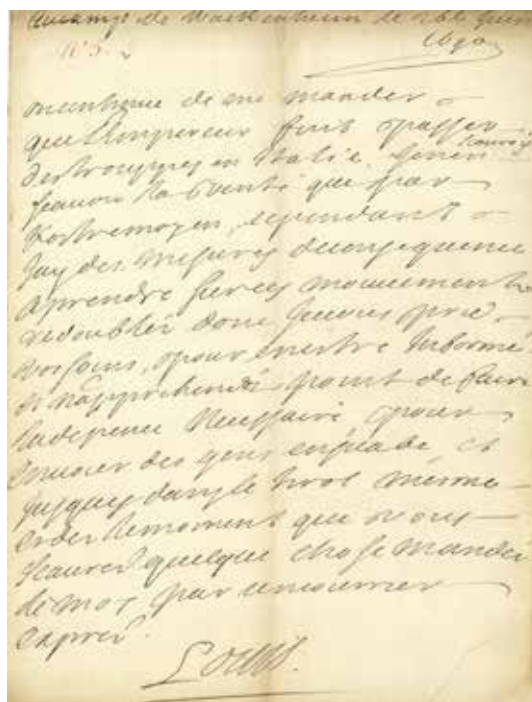 Au camp de
1690
N° 5.
on continue de me mander
que l'Empereur fait passer
des trouppes en Italie. Je n'en scauroy
scavoir la verité que par
vostre moyen, cependant
Jay des mesures de consequence
a prendre sur ces mouvements
redoublés donc Je vous prie
vos soins, pour en estre Informé
et n'apprehendés point de faire
la depence Necessaire, pour
envoier des gens en, et
jusques dans le tirol mesme
et des le moment que vous
scaurés quelque chose mandés
le moy par un courrier
exprés.
Louis.